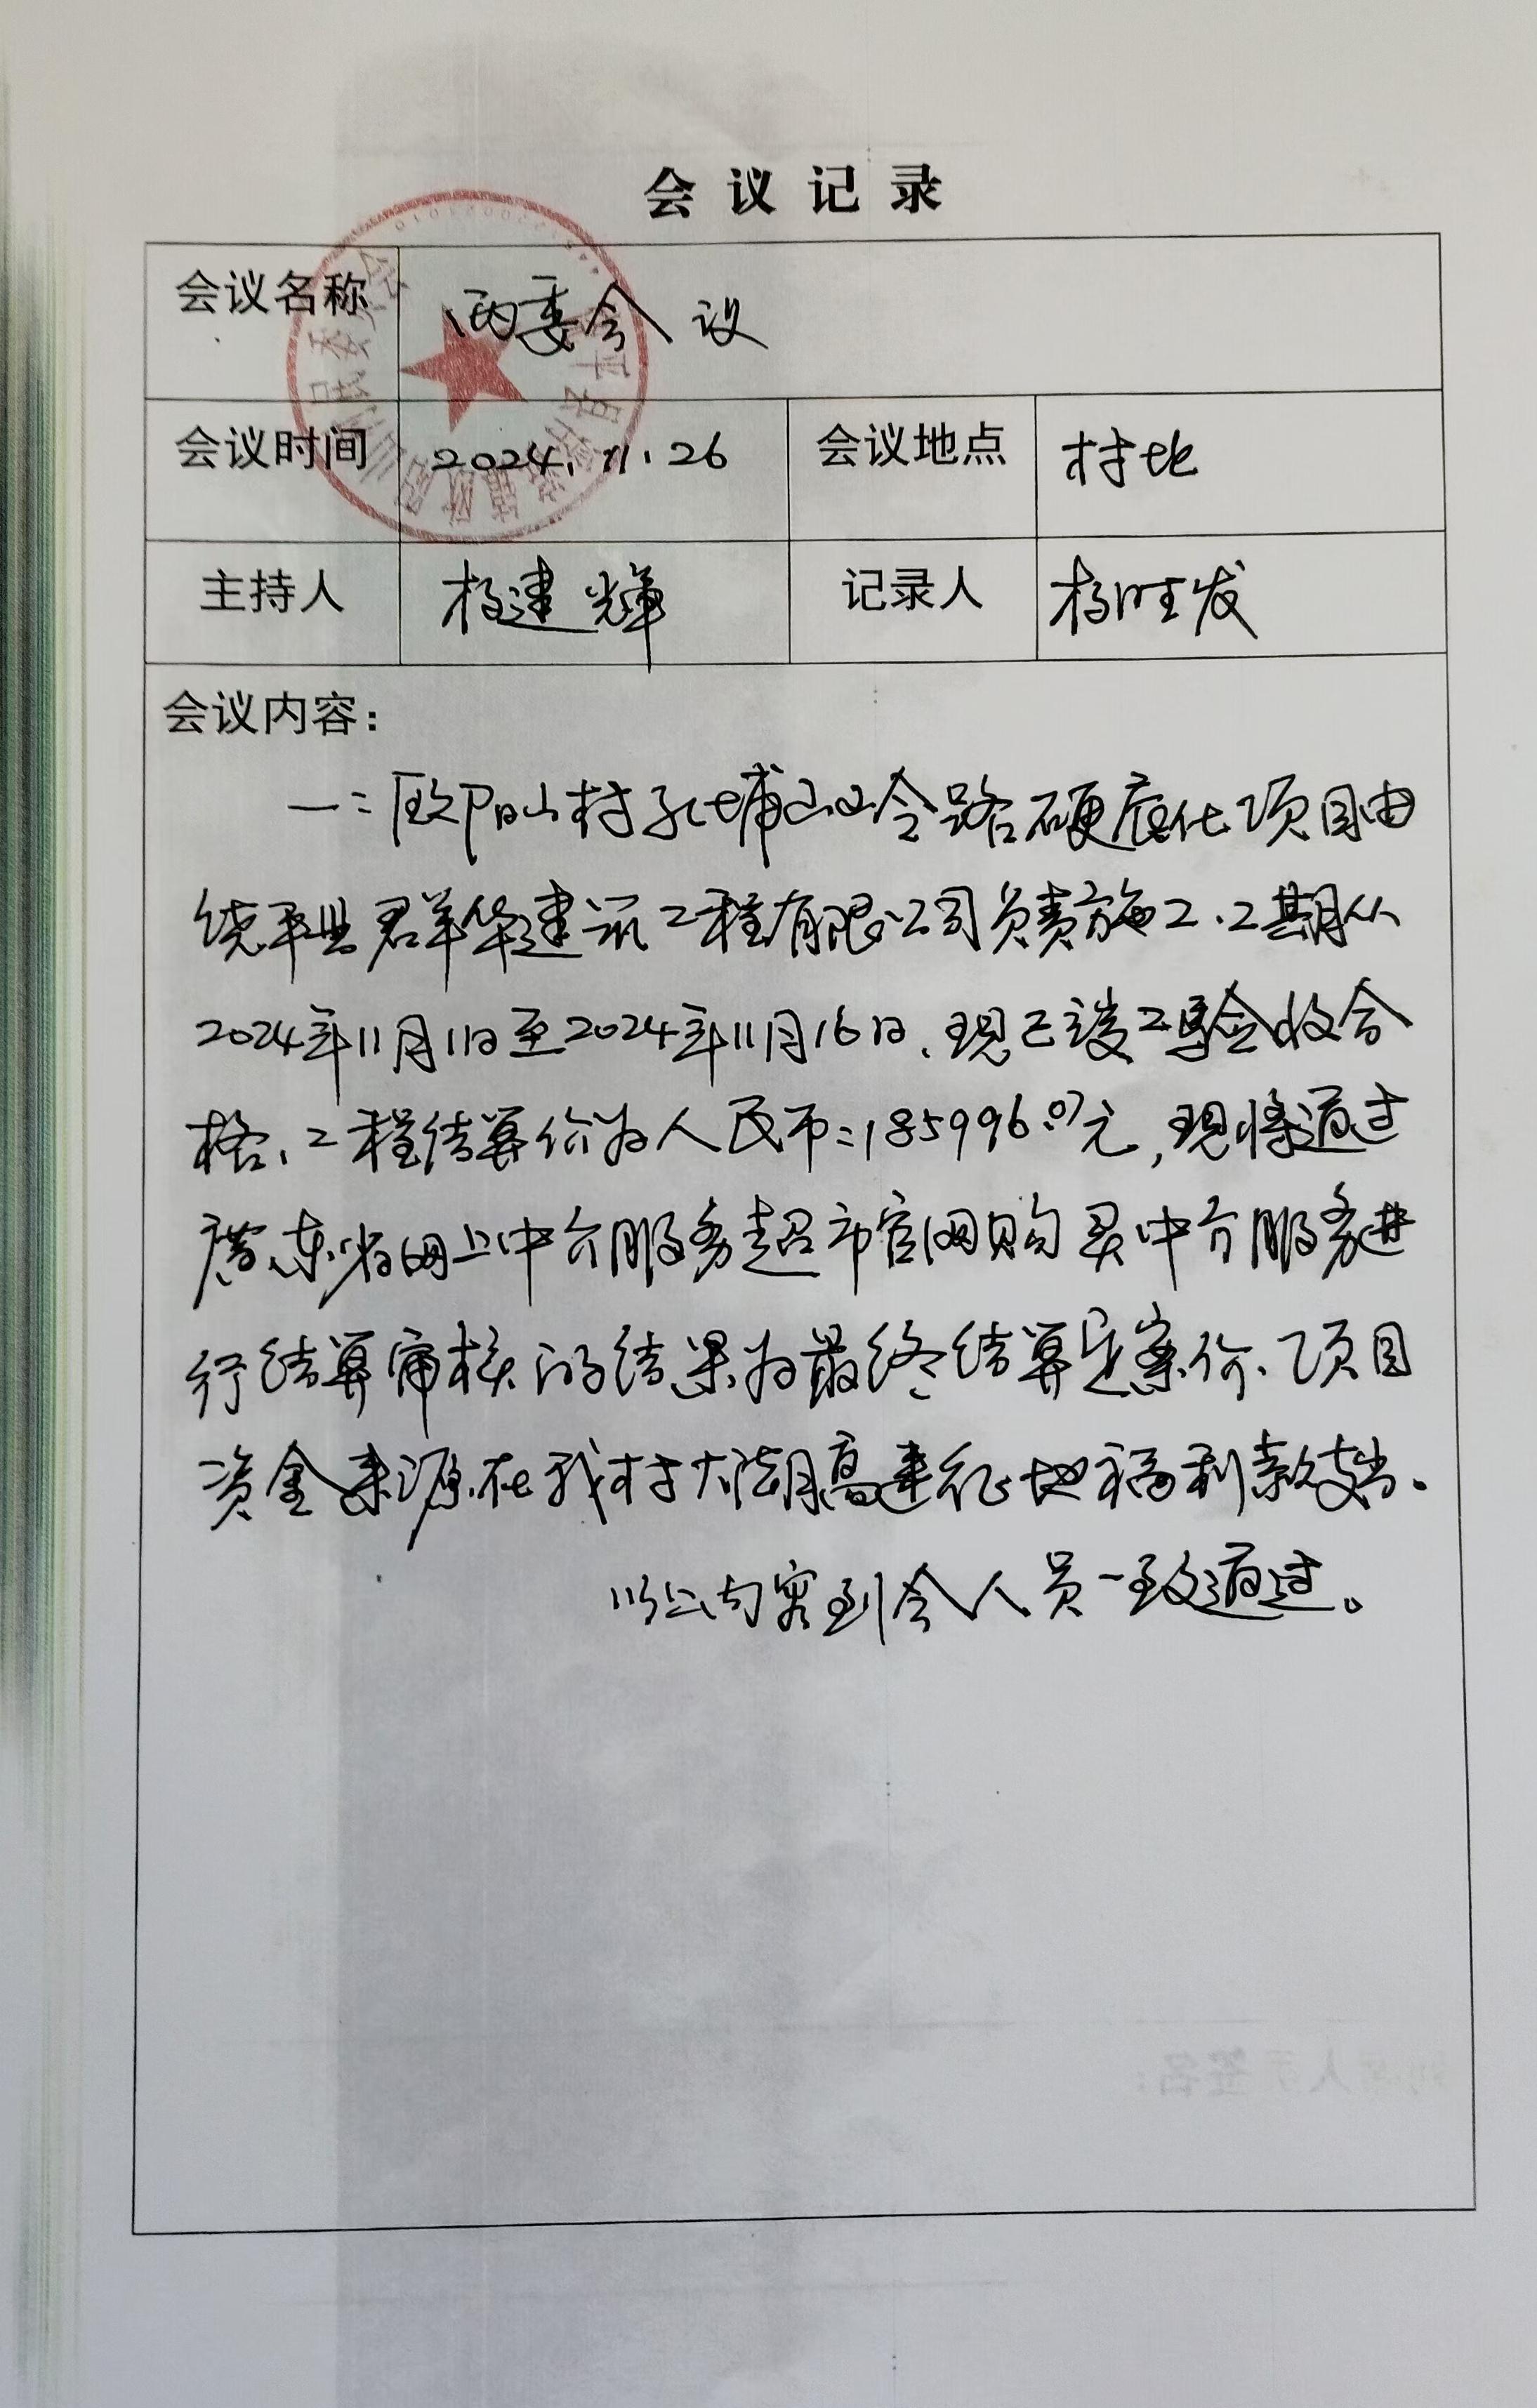 会议记录
会议名称 两委会议
会议时间 2024.11.26 会议地点 村址
主持人 杨建辉 记录人 杨旺发
会议内容:
一:欧阳山村孔埔山岭路硬底化项目由
饶平县君群华建筑工程有限公司负责施工.工期从
2024年11月1日至2024年11月16日.现已竣工验收合
格、工程结算价为人民币:185996.07元,现将通过
广东省网上中介服务超市官网购买中介服务进
行结算审核的结果为最终结算定案价.项目
资金来源在我村大潮高速征地福利款支出.
以上内容到会人员一致通过。